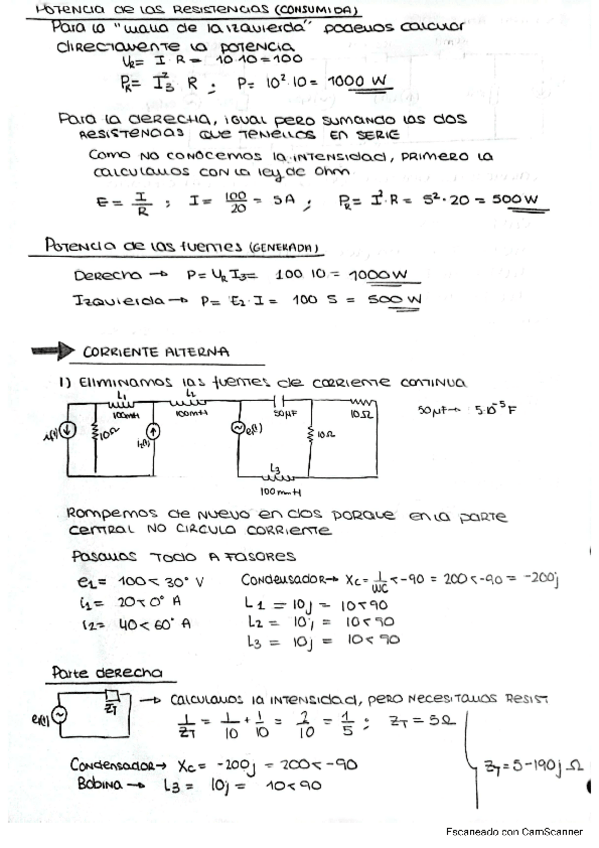 POTENCIA DE LAS RESISTENCIAS (CONSUMIDA)
Para la "malla de la izquierda" podemos calcular
directamente la potencia
UR = I · R = 10·10 = 100
PR = I₃² · R ; P = 10²·10 = 1000 W
Para la derecha, igual pero sumando las dos
RESISTENCIAS QUE TENEMOS EN SERIE
Como no conocemos la intensidad, primero la
calculamos con la ley de Ohm
E = I/R ; I = 100/20 = 5A ; PR = I²·R = 5²·20 = 500 W
POTENCIA DE LAS FUENTES (GENERADA)
Derecha → P = UR I3 = 100 10 = 1000 W
Izquierda → P = E2·I = 100 5 = 500 W
CORRIENTE ALTERNA
1) Eliminamos las fuentes de corriente continua
L1
L2
100mH
100mH
50μF
10Ω
50μF → 5·10⁻⁵ F
10Ω
i2(t)
e(t)
10Ω
L3
100mH
Rompemos de nuevo en dos porque en la parte
central NO CIRCULA CORRIENTE
Pasamos TODO A FASORES
e1 = 100<30° V
Condensador → Xc = 1/WC <-90 = 200<-90 = -200j
i1 = 20<0° A
L1 = 10j = 10<90
i2 = 40<60° A
L2 = 10j = 10<90
L3 = 10j = 10<90
Parte derecha
e(t)
ZT
→ Calculamos la intensidad, pero necesitamos RESIST
1/ZT = 1/10 + 1/10 = 2/10 = 1/5 ; ZT = 5Ω
Condensador → Xc = -200j = 200<-90
ZT = 5-190j Ω
Bobina → L3 = 10j = 10<90
Escaneado con CamScanner